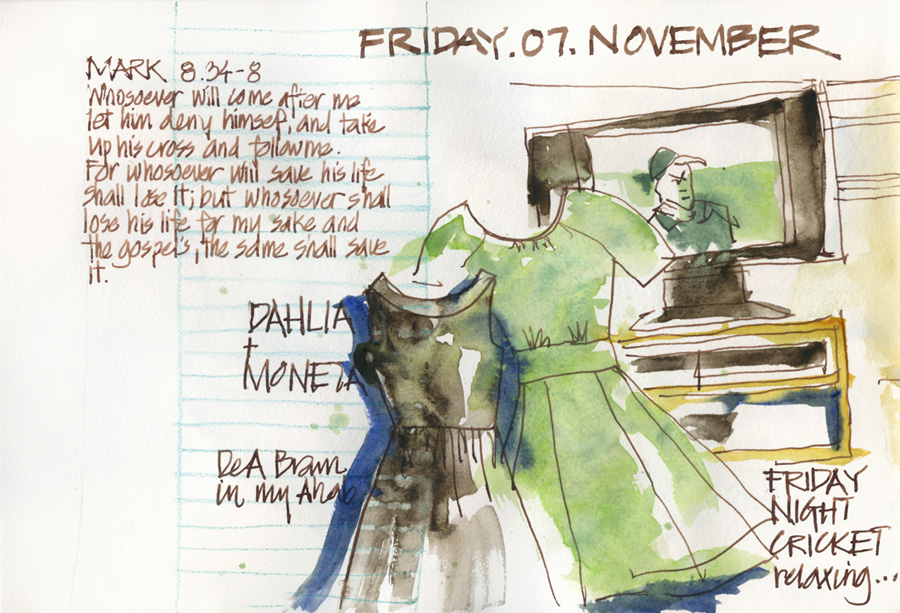 FRIDAY.07.NOVEMBER
MARK 8.34-8
Whosoever will come after me
let him deny himself, and take
up his cross and follow me.
For whosoever will save his life
shall lose it; but whosoever shall
lose his life for my sake and
the gospel's, the same shall save
it.
DAHLIA
+
MONETA
in my
FRIDAY
NIGHT
CRICKET
relaxing...